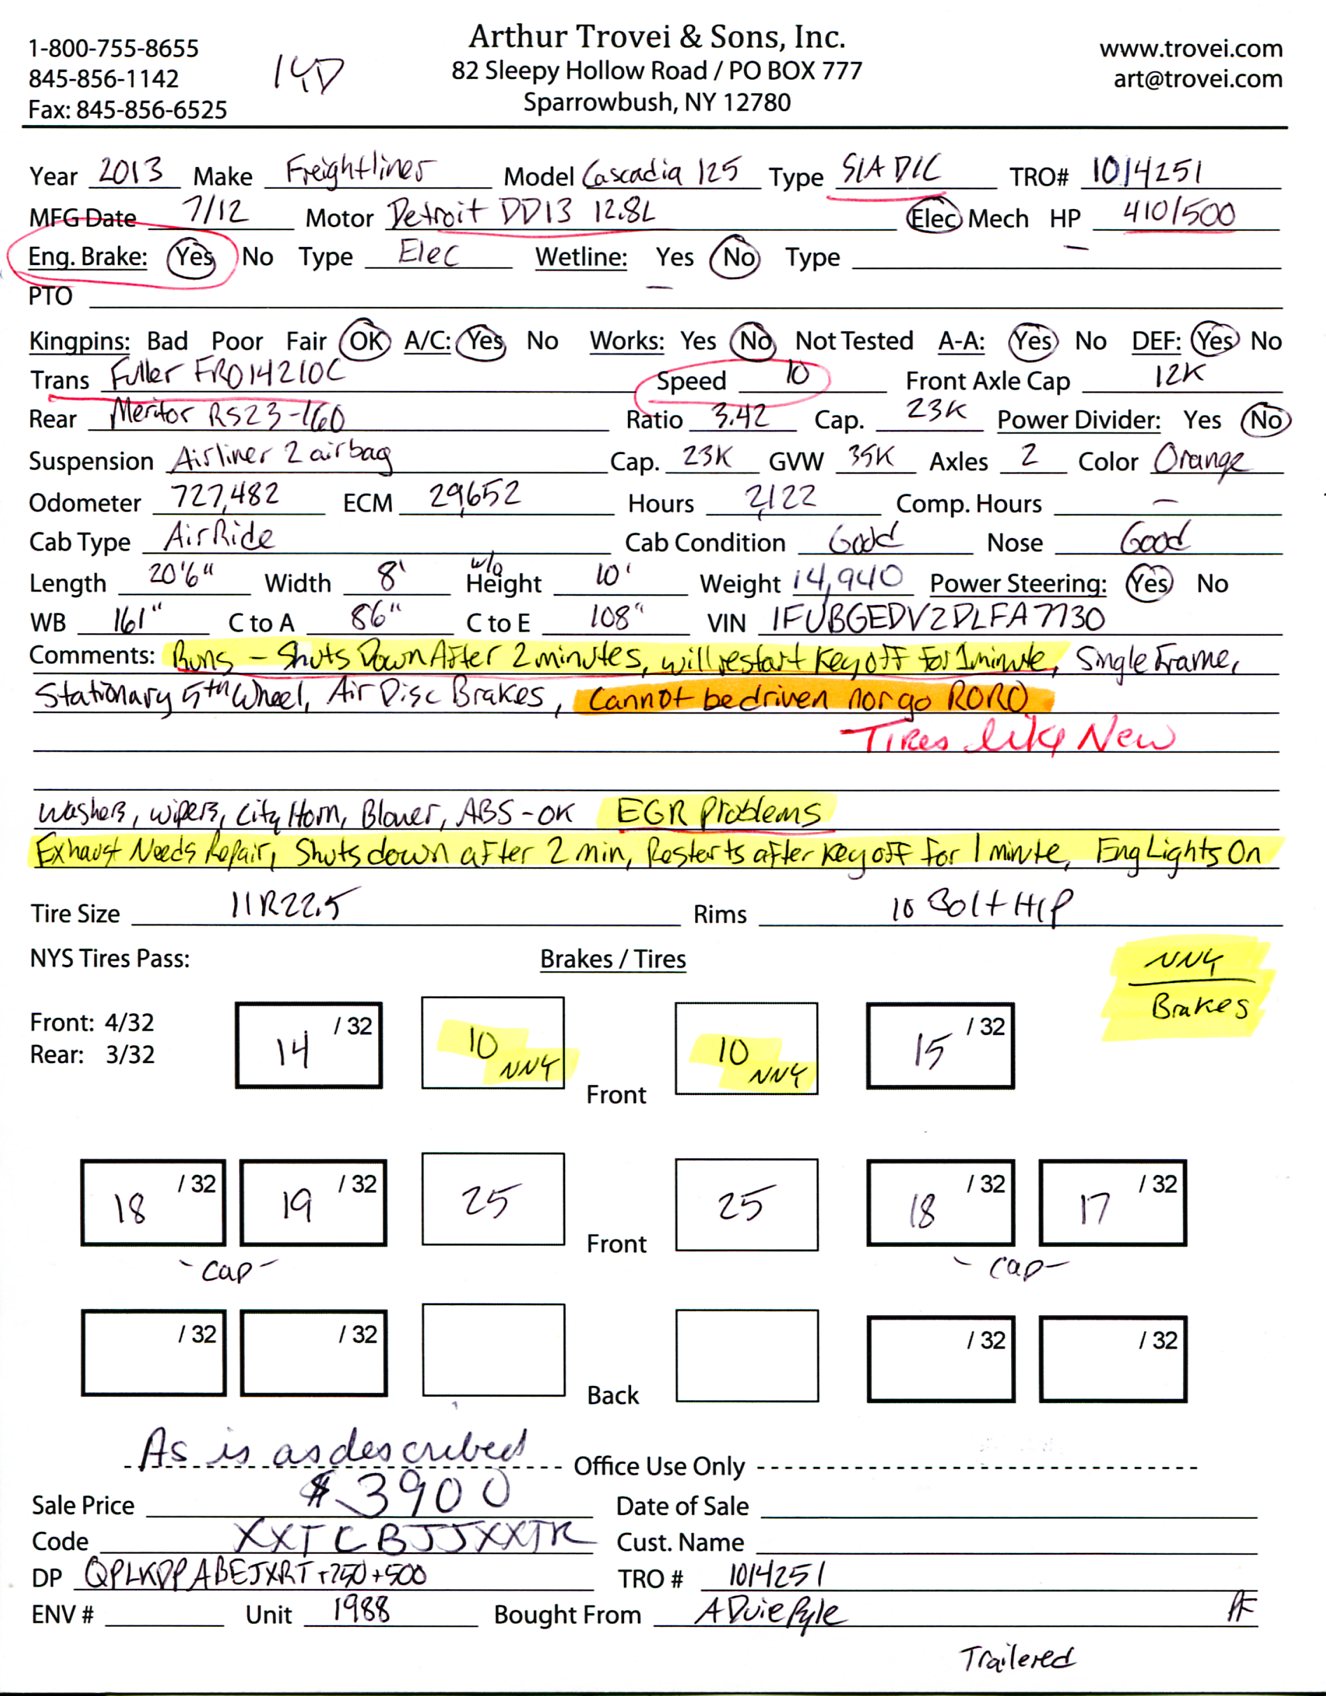 Arthur Trovei & Sons, Inc.
1-800-755-8655 82 Sleepy Hollow Road / PO BOX 777 www.trovei.com
845-856-1142 Sparrowbush, NY 12780 art@trovei.com
Fax: 845-856-6525
Year 2013 Make Freightliner Model Cascadia 125 Type S/A D/C TRO# 1014251
MFG Date 7/12 Motor Detroit DD13 12.8L Elec Mech HP 410/500
Eng. Brake: Yes No Type Elec Wetline: Yes No Type
PTO
Kingpins: Bad Poor Fair OK A/C: Yes No Works: Yes No Not Tested A-A: Yes No DEF: Yes No
Trans Fuller FRO14210C Speed 10 Front Axle Cap 12K
Rear Meritor RS23-160 Ratio 3.42 Cap. 23K Power Divider: Yes No
Suspension Airliner 2 airbag Cap. 23K GVW 35K Axles 2 Color Orange
Odometer 727,482 ECM 29,652 Hours 2,122 Comp. Hours —
Cab Type Air Ride Cab Condition Good Nose Good
Length 20'6" Width 8' w/o Height 10' Weight 14,940 Power Steering: Yes No
WB 161" C to A 86" C to E 108" VIN 1FUBGEDV2DLFA7730
Comments: Runs - Shuts Down After 2 minutes, will restart key off for 1 minute, Single Frame,
Stationary 5th Wheel, Air Disc Brakes, Cannot be driven nor go RORO
Tires like New
Washers, wipers, City Horn, Blower, ABS - OK EGR Problems
Exhaust Needs Repair, Shuts down after 2 min, Restarts after key off for 1 minute, Eng Lights On
Tire Size 11R22.5 Rims 10 Bolt H/P
NYS Tires Pass: Brakes / Tires NNY
Brakes
Front: 4/32
Rear: 3/32
14 /32 10 NNY Front 10 NNY 15 /32
18 /32 19 /32 25 Front 25 18 /32 17 /32
- Cap - - Cap -
/32 /32 Back /32 /32
As is as described Office Use Only
Sale Price $3900 Date of Sale
Code XXTCBJJXXTR Cust. Name
DP QPLKDPABEJXRT +250 +500 TRO # 1014251
ENV # Unit 1988 Bought From A Duie Pyle
Trailered